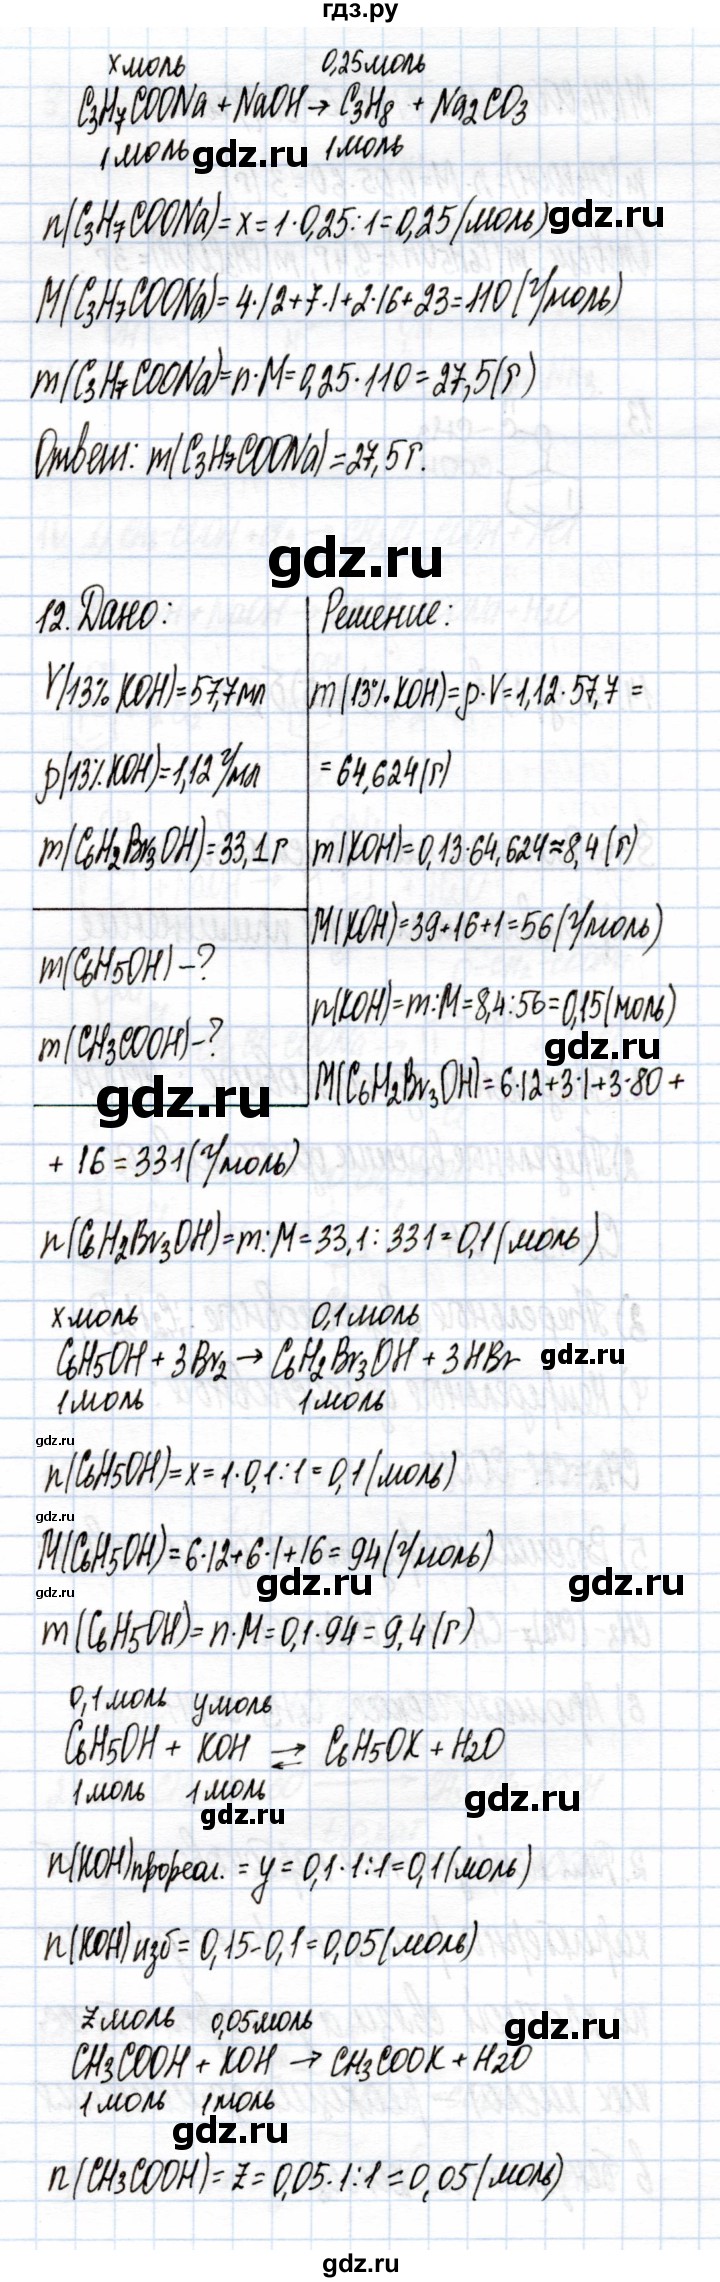 гдз.ру
x моль 0,25 моль
C3H7COONa + NaOH → C3H8 + Na2CO3
1 моль 1 моль
gdz.ru
n(C3H7COONa) = x = 1·0,25:1 = 0,25 (моль)
gdz.ru
M(C3H7COONa) = 4·12+7·1+2·16+23 = 110 (г/моль)
m(C3H7COONa) = n·M = 0,25·110 = 27,5 (г)
Ответ: m(C3H7COONa) = 27,5 г.
gdz.ru
12. Дано:
V(13% KOH) = 57,7 мл
ρ(13% KOH) = 1,12 г/мл
m(C6H2Br3OH) = 33,1 г
m(C6H5OH) – ?
m(CH3COOH) – ?
gdz.ru
Решение:
m(13% KOH) = ρ·V = 1,12·57,7 =
= 64,624 (г)
m(KOH) = 0,13·64,624 ≈ 8,4 (г)
M(KOH) = 39+16+1 = 56 (г/моль)
n(KOH) = m:M = 8,4:56 = 0,15 (моль)
gdz.ru
M(C6H2Br3OH) = 6·12+3·1+3·80 +
+ 16 = 331 (г/моль)
n(C6H2Br3OH) = m:M = 33,1:331 = 0,1 (моль)
x моль 0,1 моль
C6H5OH + 3Br2 → C6H2Br3OH + 3HBr
gdz.ru
1 моль 1 моль
gdz.ru
n(C6H5OH) = x = 1·0,1:1 = 0,1 (моль)
gdz.ru
M(C6H5OH) = 6·12+6·1+16 = 94 (г/моль)
gdz.ru
gdz.ru
gdz.ru
m(C6H5OH) = n·M = 0,1·94 = 9,4 (г)
0,1 моль y моль
C6H5OH + KOH ⇄ C6H5OK + H2O
1 моль 1 моль
gdz.ru
gdz.ru
n(KOH)прореаг. = y = 0,1·1:1 = 0,1 (моль)
n(KOH)изб = 0,15-0,1 = 0,05 (моль)
z моль 0,05 моль
gdz.ru
CH3COOH + KOH → CH3COOK + H2O
1 моль 1 моль
gdz.ru
n(CH3COOH) = z = 0,05·1:1 = 0,05 (моль)
gdz.ru